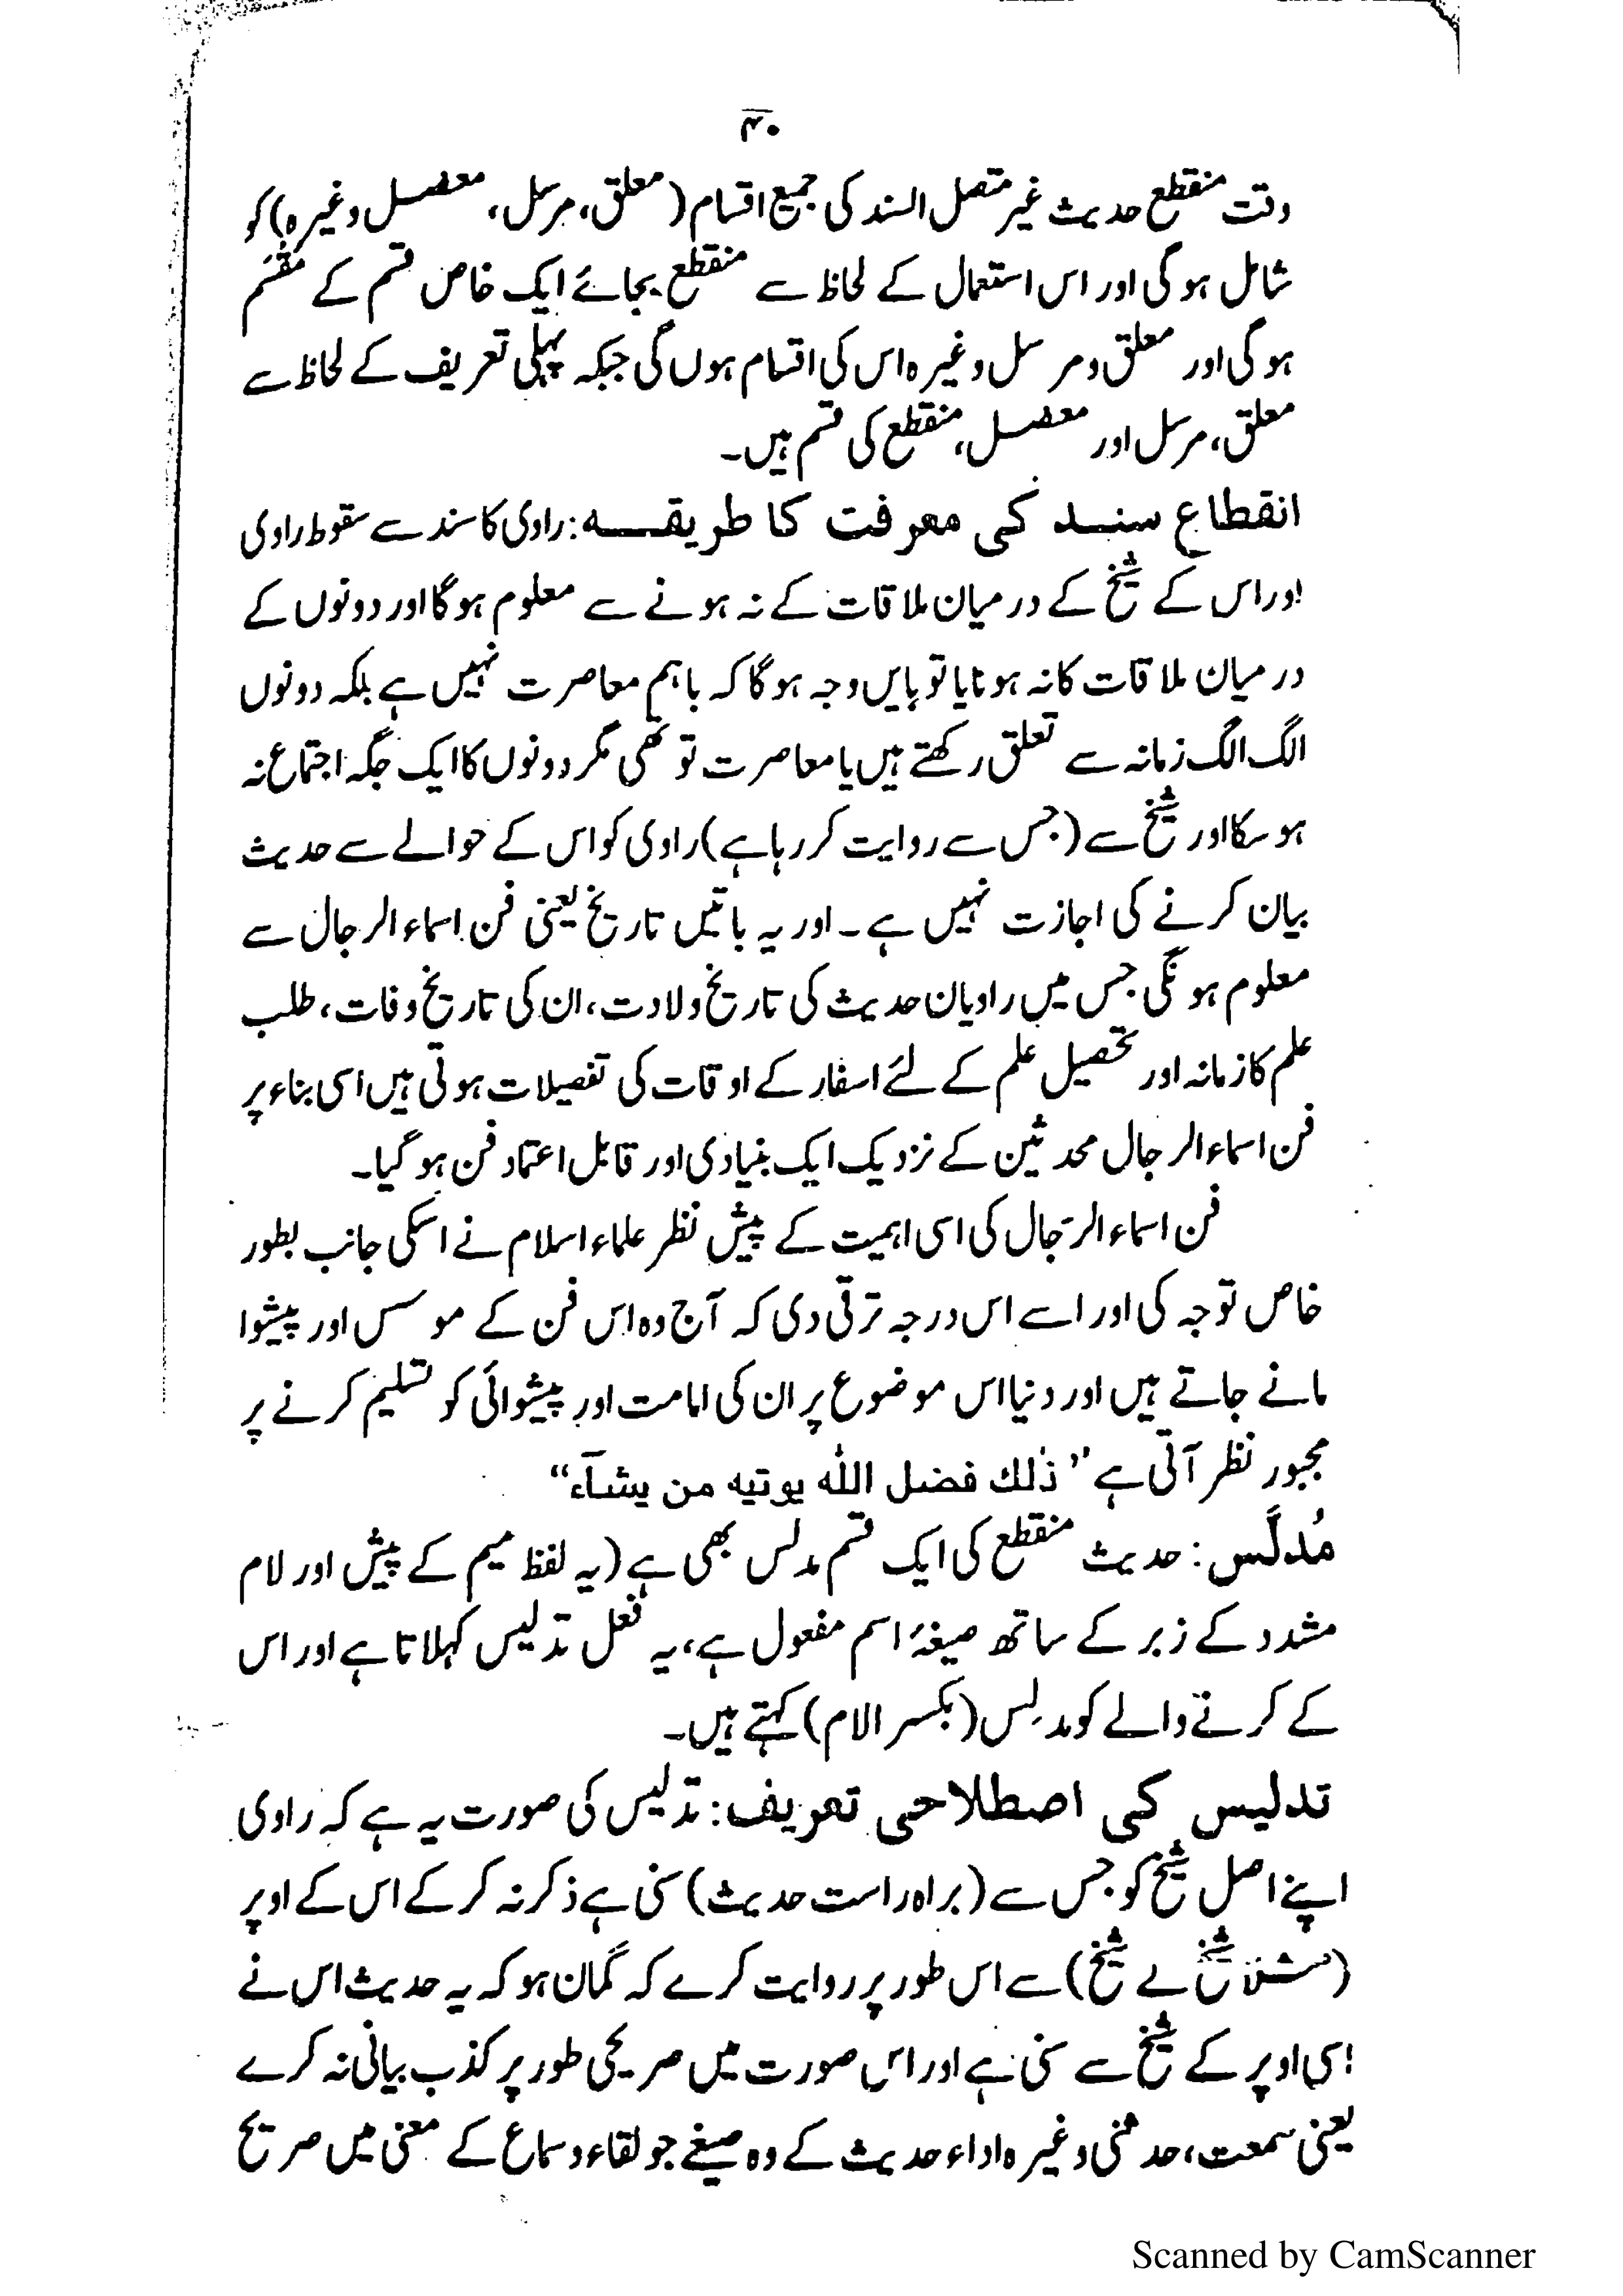 ۴۰
وقت منقطع حدیث غیر متصل السند کی جمیع اقسام (معلق، مرسل، معضل وغیرہ) کو
شامل ہوگی اور اس استعمال کے لحاظ سے منقطع بجائے ایک خاص قسم کے مَقْسَم
ہوگی اور معلق و مرسل وغیرہ اس کی اقسام ہوں گی جبکہ پہلی تعریف کے لحاظ سے
معلق، مرسل اور معضل، منقطع کی قسم ہیں۔
انقطاع سند کی معرفت کا طریقہ: راوی کا سند سے سقوط راوی
اور اس کے شیخ کے درمیان ملاقات کے نہ ہونے سے معلوم ہوگا اور دونوں کے
درمیان ملاقات کا نہ ہونا یا تو بایں وجہ ہوگا کہ باہم معاصرت نہیں ہے بلکہ دونوں
الگ الگ زمانہ سے تعلق رکھتے ہیں یا معاصرت تو تھی مگر دونوں کا ایک جگہ اجتماع نہ
ہو سکا اور شیخ سے (جس سے روایت کر رہا ہے) راوی کو اس کے حوالے سے حدیث
بیان کرنے کی اجازت نہیں ہے۔ اور یہ باتیں تاریخ یعنی فن اسماء الرجال سے
معلوم ہونگی جس میں راویان حدیث کی تاریخ ولادت، ان کی تاریخ وفات، طلب
علم کا زمانہ اور تحصیل علم کے لئے اسفار کے اوقات کی تفصیلات ہوتی ہیں اسی بناء پر
فن اسماء الرجال محدثین کے نزدیک ایک بنیادی اور قابل اعتماد فن ہو گیا۔
فن اسماء الرجال کی اسی اہمیت کے پیش نظر علماء اسلام نے اسکی جانب بطور
خاص توجہ کی اور اسے اس درجہ ترقی دی کہ آج وہ اس فن کے موسس اور پیشوا
مانے جاتے ہیں اور دنیا اس موضوع پر ان کی امامت اور پیشوائی کو تسلیم کرنے پر
مجبور نظر آتی ہے ”ذٰلك فضل الله یوتیه من یشآء“
مُدلَّس: حدیث منقطع کی ایک قسم مدلس بھی ہے (یہ لفظ میم کے پیش اور لام
مشدد کے زبر کے ساتھ صیغۂ اسم مفعول ہے، یہ فعل تدلیس کہلاتا ہے اور اس
کے کرنے والے کو مدلِس (بکسر الام) کہتے ہیں۔
تدلیس کی اصطلاحی تعریف: تدلیس کی صورت یہ ہے کہ راوی
اپنے اصل شیخ کو جس سے (براہ راست حدیث) سنی ہے ذکر نہ کر کے اس کے اوپر
(مثلاً شیخ کے شیخ) سے اس طور پر روایت کرے کہ گمان ہو کہ یہ حدیث اس نے
اسی اوپر کے شیخ سے سنی ہے اور اس صورت میں صریحی طور پر کذب بیانی نہ کرے
یعنی سمعت، حدثنی وغیرہ اداء حدیث کے وہ صیغے جو لقاء و سماع کے معنی میں صریح
Scanned by CamScanner